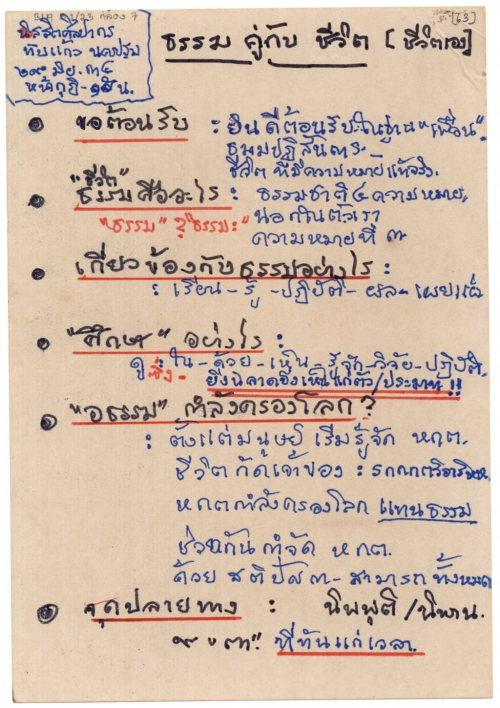 BIA 3.1/23 กล่อง 7
[63]
นิสิตศิลปากร
ทับแก้ว นครปฐม
๒๙ มิย. ๓๔
หน้ากุฏิ
ธรรม คู่กับ ชีวิต [ชีวิตเอง]
ขอต้อนรับ : ยินดีต้อนรับในฐาน "เพื่อน"
ธมฺมปฏิสันถาร
ชีวิต ที่มีความหมายแท้จริง
"ชีวิต"
ธรรมคืออะไร : ธรรมชาติ ๔ ความหมาย,
"ธรรม" ? "ธรรมะ" นอก ใน ตัวเรา
ความหมายที่ ๓
เกี่ยวข้องกับธรรมอย่างไร :
: เรียน - รู้ - ปฏิบัติ - ผล - เผยแผ่
"ศึกษา" อย่างไร :
ดู : ใน - ด้วย - เห็น - รู้จัก - วิจัย - ปฏิบัติ.
ซึ่ง - ยิ่งฉลาดยิ่งเห็นแก่ตัว/ประมาท !!
"อธรรม" กำลังครองโลก ?
: ตั้งแต่มนุษย์ เริ่มรู้จัก หกต.
ชีวิต กัดเจ้าของ :
หกตกำลังครองโลก แทนธรรม
ช่วยกันกำจัด หกต.
ด้วย สติปัส ๓ - สามารถ ทั้งหมด
จุดปลายทาง : นิพพุติ / นิพาน.
ที่ทันแก่เวลา.